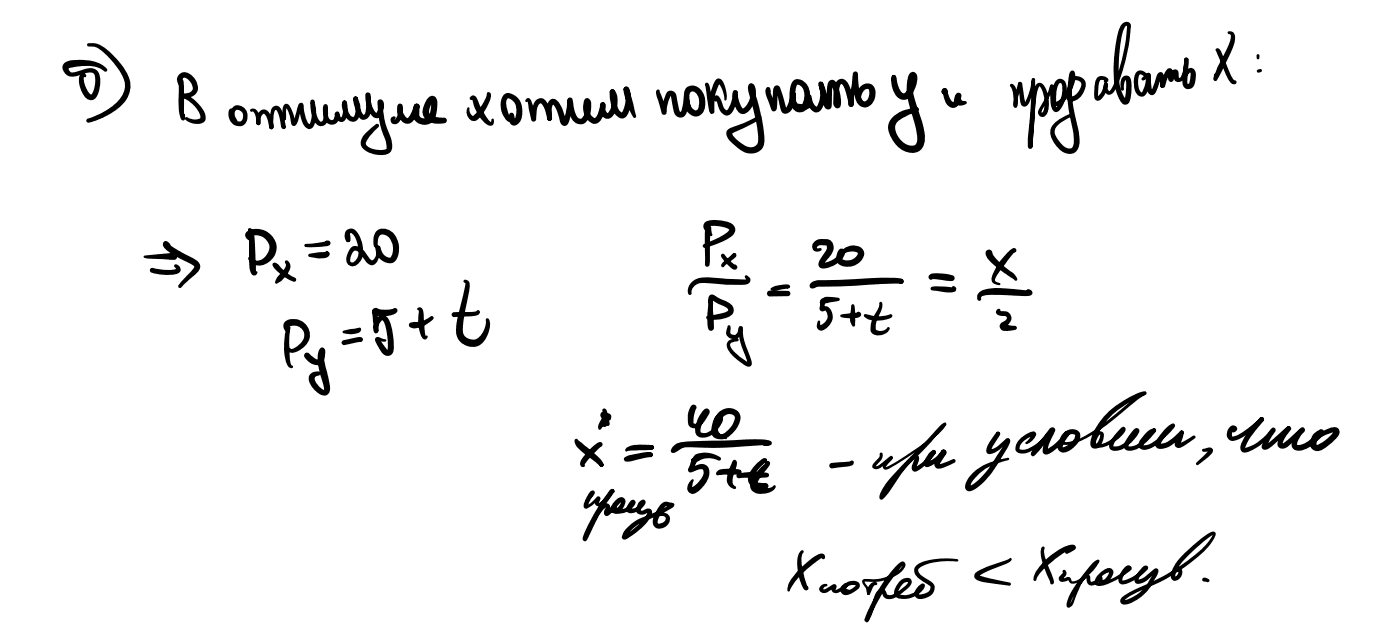 б) В оптимуме хотим покупать y и продавать X:
⇒ Px = 20
Py = 5 + t
Px/Py = 20/(5+t) = x/2
x* произв = 40/(5+t) - при условии, что
X потреб < X произв.